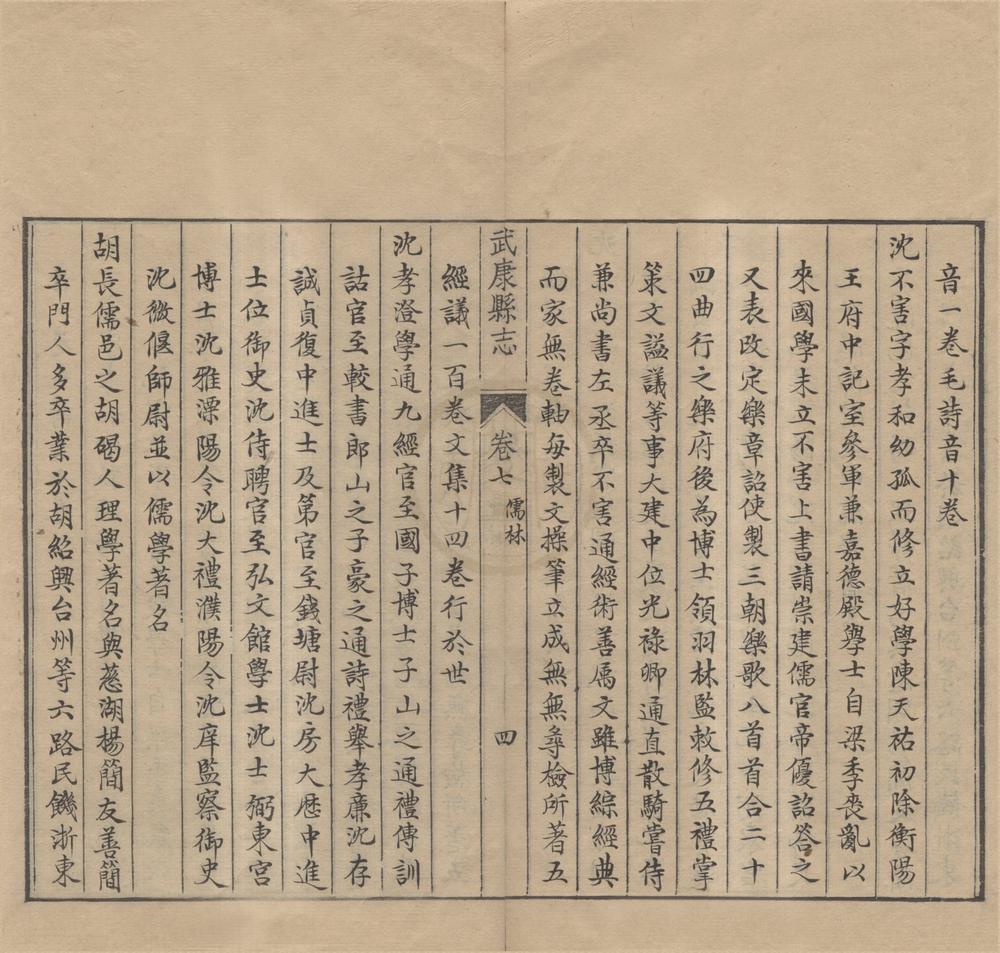 音一卷毛詩音十卷
沈不害字孝和幼孤而修立好學陳天祐初除衡陽
王府中記室參軍兼嘉德殿學士自梁季喪亂以
來國學未立不害上書請崇建儒官帝優詔答之
又表改定樂章詔使製三朝樂歌八首首合二十
四曲行之樂府後為博士領羽林監敕修五禮掌
策文謚議等事大建中位光祿卿通直散騎嘗侍
兼尚書左丞卒不害通經術善屬文雖博綜經典
而家無卷軸每製文操筆立成無無尋檢所著五
經議一百卷文集十四卷行於世
武康縣志 卷七 儒林 四
沈孝澄學通九經官至國子博士子山之通禮傳訓
詁官至較書郎山之子豪之通詩禮舉孝廉沈存
誠貞復中進士及第官至錢塘尉沈房大歷中進
士位御史沈侍聘官至弘文館學士沈士弼東宮
博士沈雅溧陽令沈大禮濮陽令沈庠監察御史
沈微偃師尉並以儒學著名
胡長儒邑之胡碣人理學著名與慈湖楊簡友善簡
卒門人多卒業於胡紹興台州等六路民饑浙東